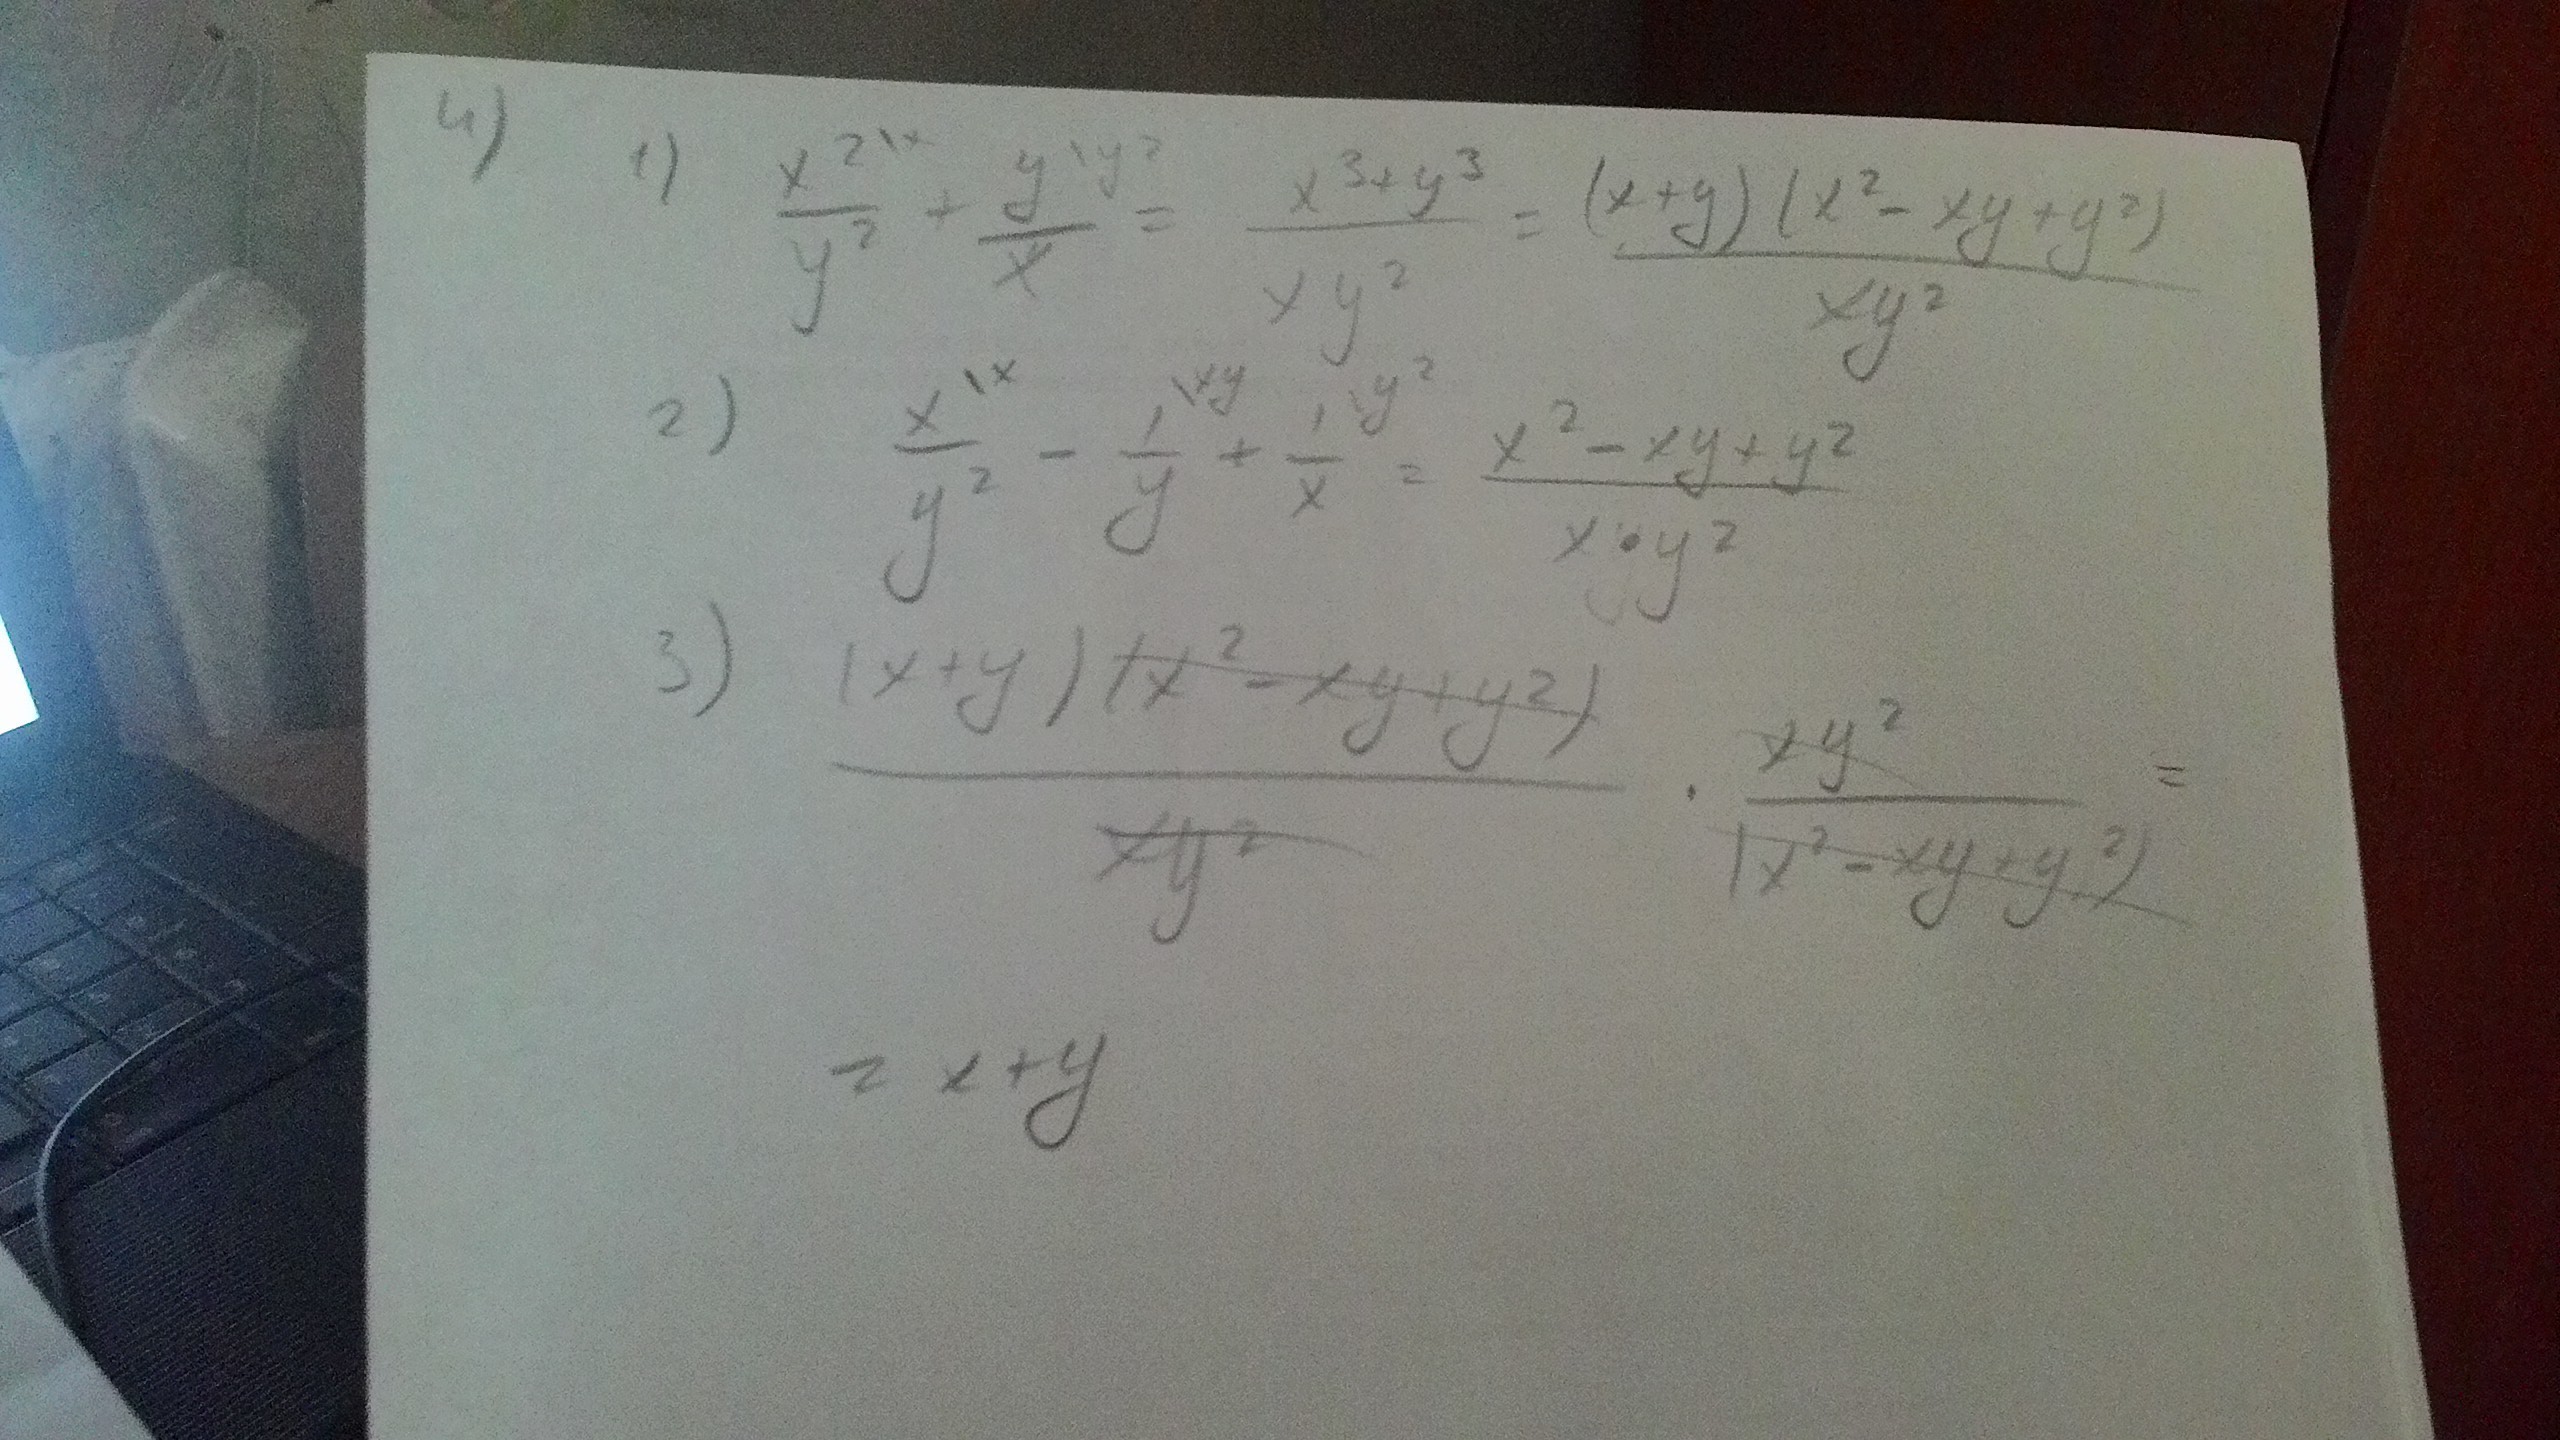 4) 1) x²\x/y² + y\y²/x = x³+y³/xy² = (x+y)(x²-xy+y²)/xy²
2) x\x/y² - 1\xy/y + 1\y²/x = x²-xy+y²/x·y²
3) (x+y)(x²-xy+y²)/xy² · xy²/(x²-xy+y²) =
= x+y